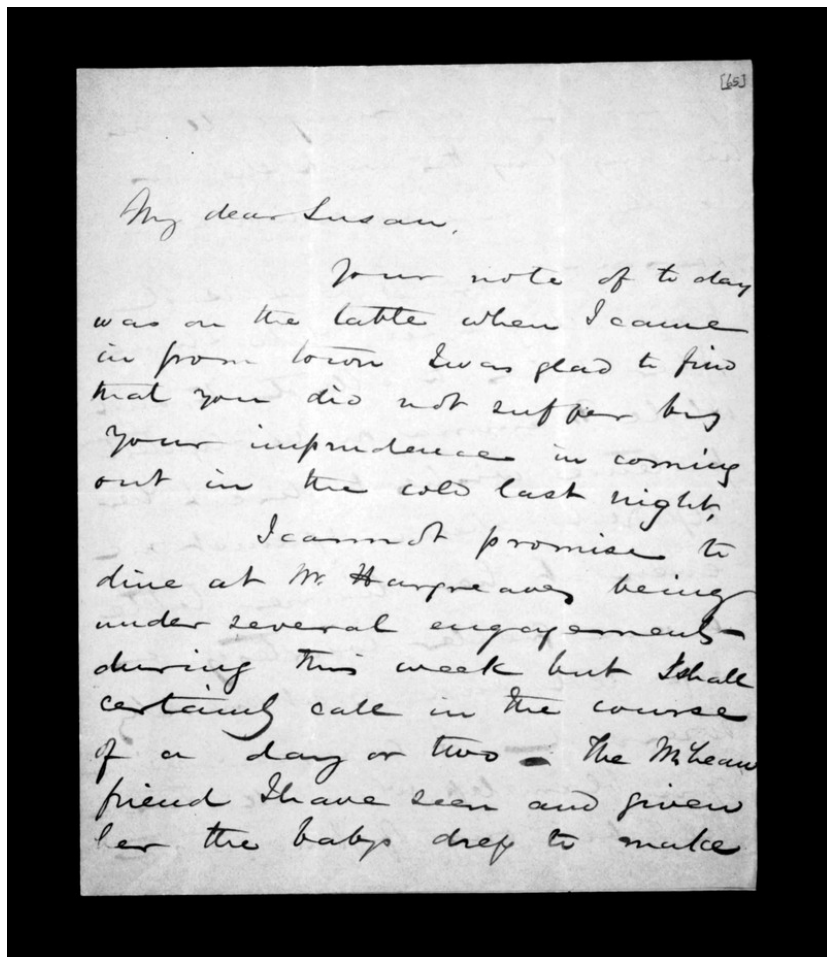 [65]
My dear Susan,
Your note of to day
was on the table when I came
in from town I was glad to find
that you did not suffer by
your imprudence in coming
out in the cold last night,
I cannot promise to
dine at Mr Hargreaves being
under several engagements
during this week but I shall
certainly call in the course
of a day or two - The McLean
friend I have seen and given
her the babys dress to make